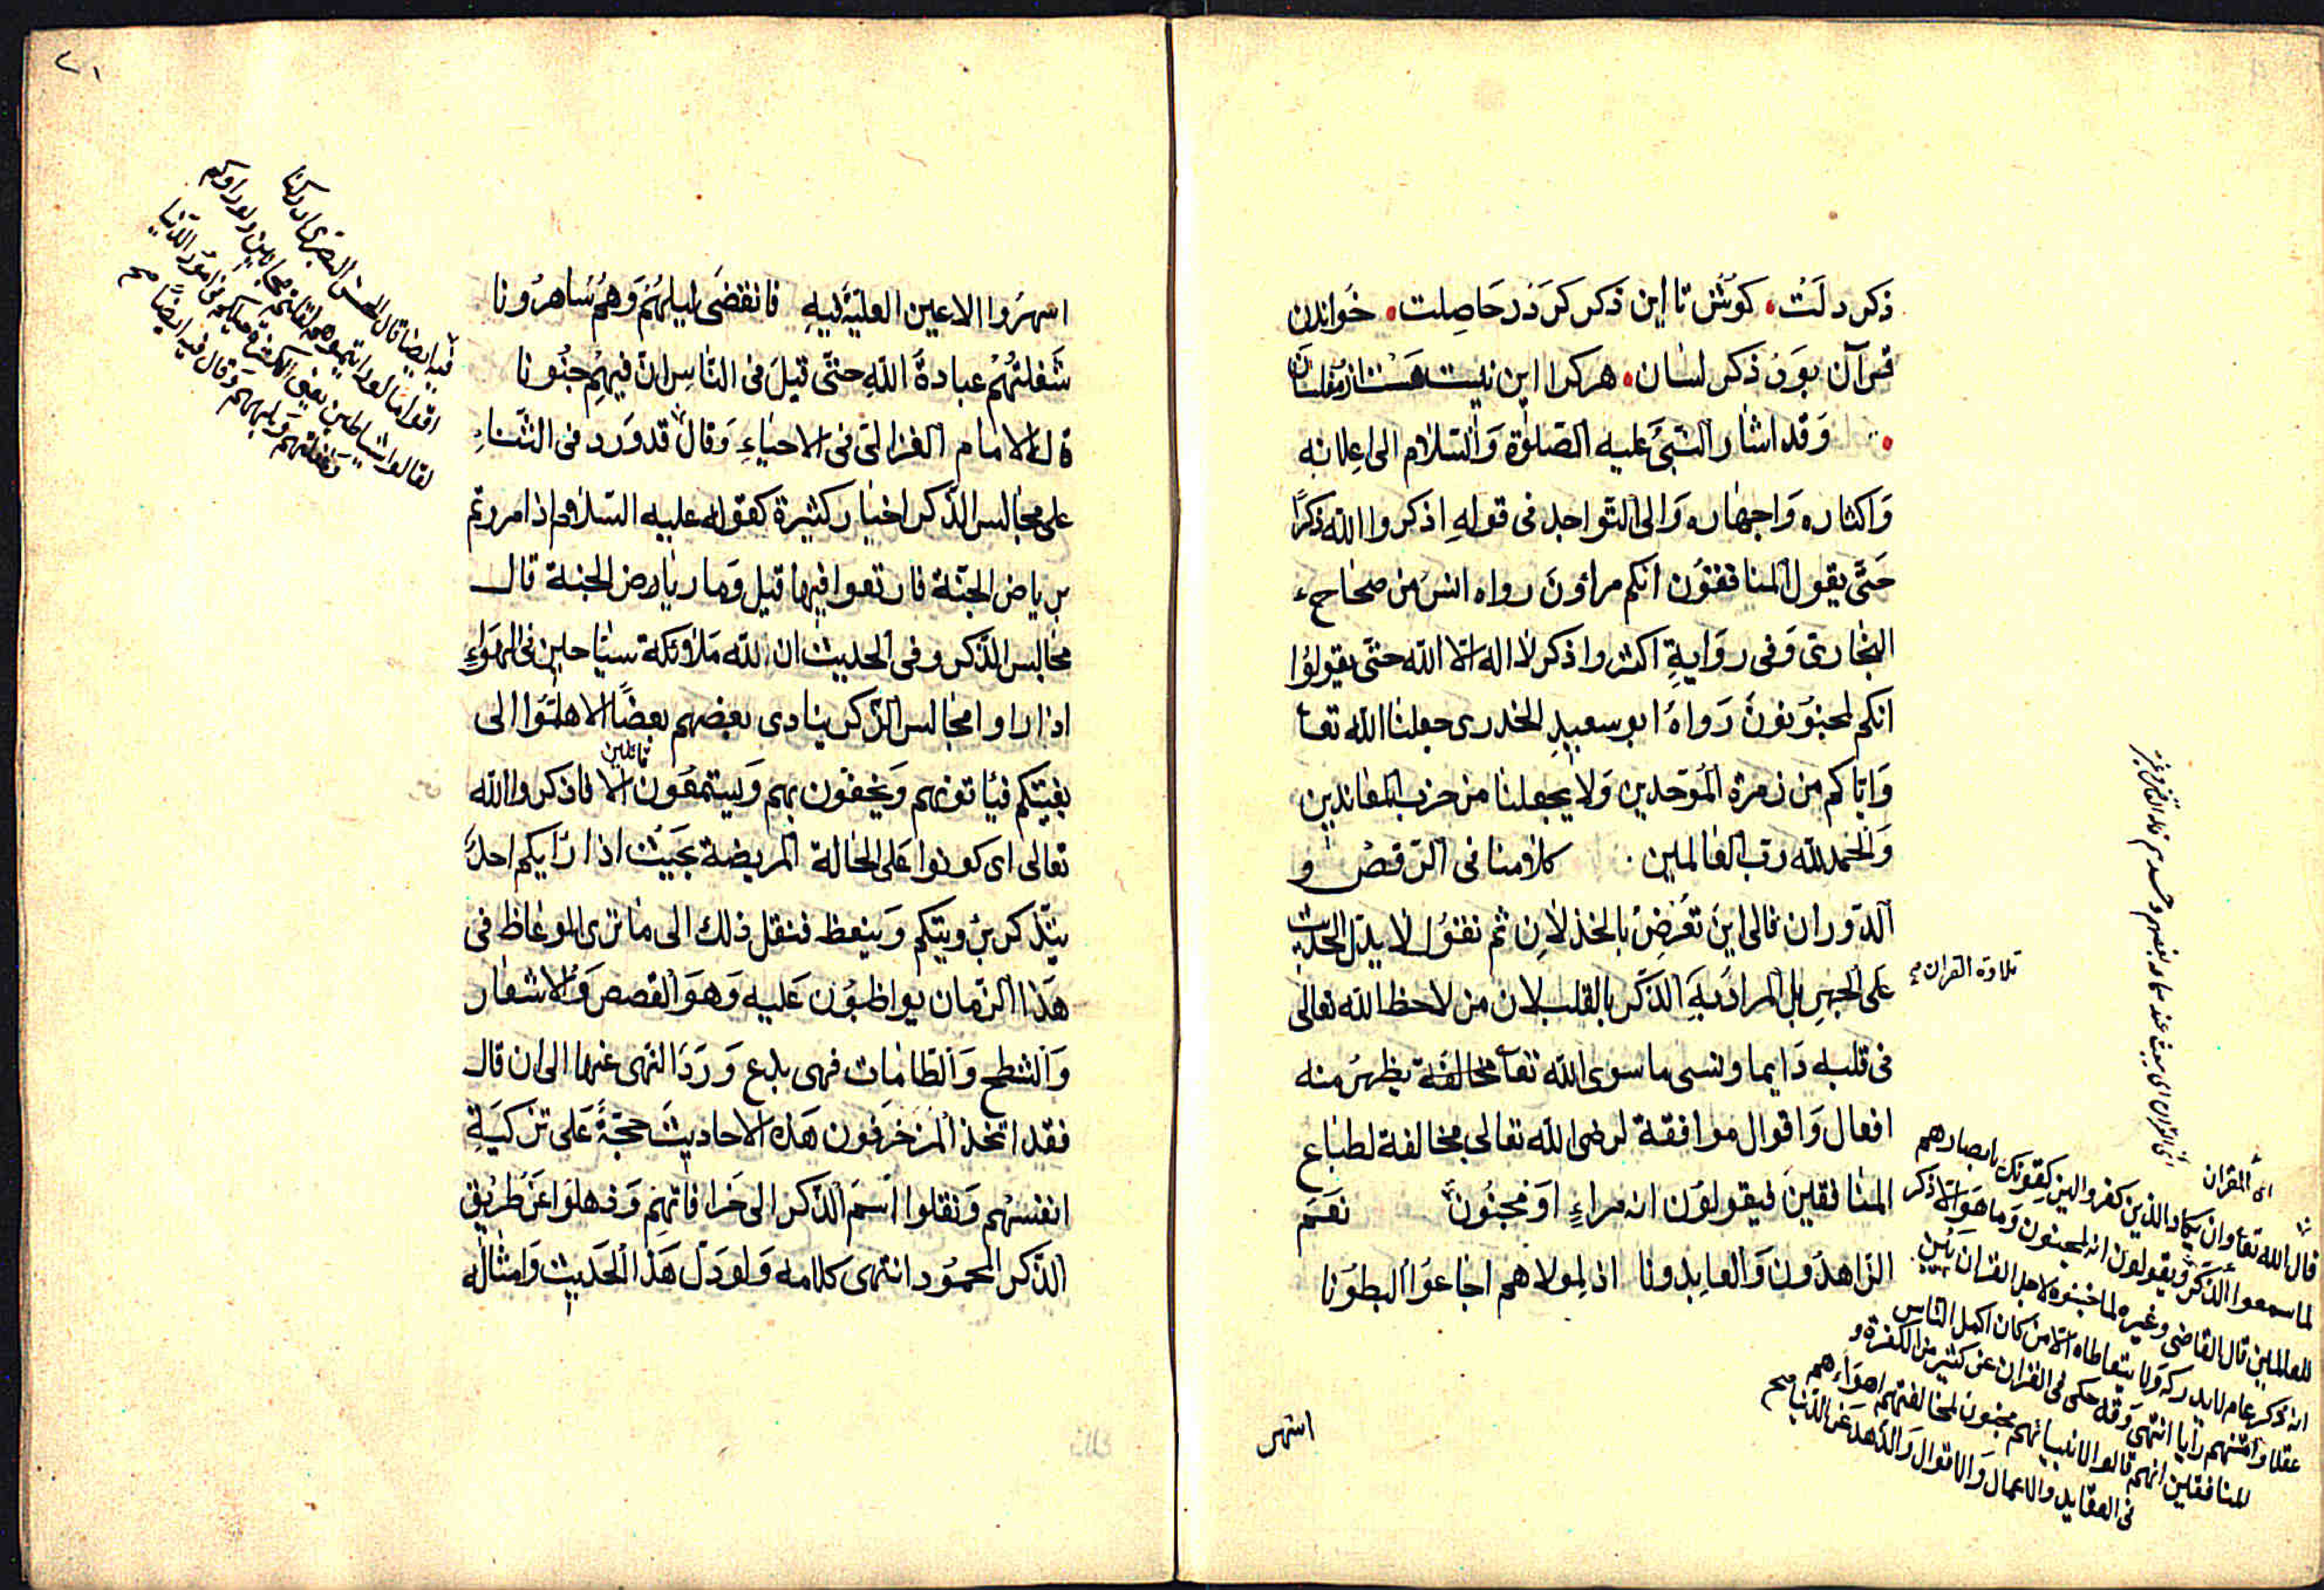 ذكر دلت كوش تا اين ذكر كردد حاصلت خواندن
قرآن بود ذكر لسان هركرا اين نيست هست از مفلسان
وقد اشار النبى عليه الصلوة والسلام الى اعلانه
واكثاره واجهاره والى التواجد فى قوله اذكروا الله ذكرا
حتى يقول المنافقون انكم مراؤن رواه انس من صحاح
البخارى وفى رواية اكثروا ذكر لا اله الا الله حتى يقولوا
انكم لمجنونون رواه ابو سعيد الخدرى جعلنا الله تعا
واياكم من زمرة الموحدين ولا يجعلنا من حزب المعاندين
والحمد لله رب العالمين كلامنا فى الرقص و
الدوران فالى اين تعرض بالخذلان ثم نقول لا يدل الحديث
على الجهر بل المراد به الذكر بالقلب لان من لاحظ الله تعالى
فى قلبه دايما ونسى ما سوى الله تعا مخالفة يظهر منه
افعال واقوال موافقة لرضى الله تعالى مخالفة لطباع
المنافقين فيقولون انه مراء او مجنون نعم
الزاهدون والعابدونا اذ لمولاهم اجاعوا البطونا
اسهر
تلاوة القران
اى القران
قال الله تعا وان يكاد الذين كفروا ليزلقونك بابصارهم
لما سمعوا الذكر ويقولون انه لمجنون وما هو الا ذكر
للعالمين قال القاضى وغيره لما جننوه لاجل القران بين
انه ذكر عام لا يدركه ولا يتعاطاه الا من كان اكمل الناس
عقلا وامتنهم رأيا انتهى وقد حكى فى القران عن كثير من الكفرة و
المنافقين انهم قالوا لانبيائهم مجنون لمخالفتهم اهواءهم
فى العقايد والاعمال والاقوال والزهد عن الدنيا صح
٢١
اسهروا الاعين العلية فيه فانقضى ليلهم وهم ساهرونا
شغلتهم عبادة الله حتى قيل فى الناس ان فيهم جنونا
قاله الامام الغزالى فى الاحياء وقال قد ورد فى الثناء
على مجالس الذكر اخبار كثيرة كقوله عليه السلام اذا مررتم
برياض الجنة فارتعوا فيها قيل وما رياض الجنة قال
مجالس الذكر وفى الحديث ان لله ملائكة سياحين فى الهواء
اذا راوا مجالس الذكر ينادى بعضهم بعضا الا هلموا الى
بغيتكم فيأتونهم ويحفون بهم ويستمعون قائلين الا فاذكروا الله
تعالى اى كونوا على الحالة المريضة بحيث اذا رايكم احد
يتذكر برؤيتكم ويتعظ فنقل ذلك الى ما ترى الموعاظ فى
هذا الزمان يواظبون عليه وهو القصص والاشعار
والشطح والطامات فهى بدع ورد النهى عنها الى ان قال
فقد اتخذ المزخرفون هذه الاحاديث حجة على تزكية
انفسهم ونقلوا اسم الذكر الى خرافاتهم وذهلوا عن طريق
الذكر المحمود انتهى كلامه ولو دل هذا الحديث وامثاله
فيه ايضا قال الحسن البصرى ادركنا
اقواما لو رايتموهم لقلتم مجانين ولو راوكم
لقالوا شياطين يعنى فى امور الدنيا
وقال فيه ايضا صح